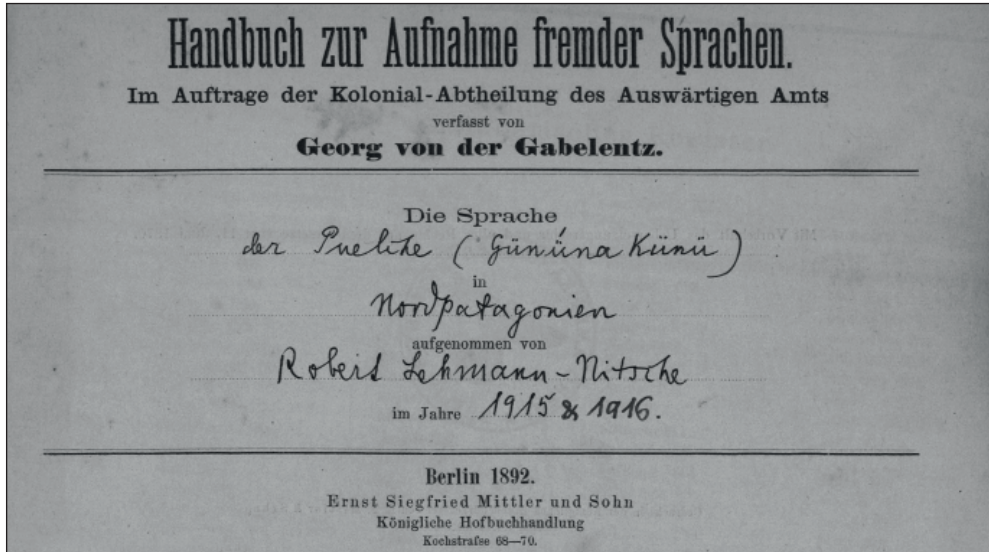 Handbuch zur Aufnahme fremder Sprachen.
Im Auftrage der Kolonial-Abtheilung des Auswärtigen Amts
verfasst von
Georg von der Gabelentz.
Die Sprache
der Puelche (Gününa Künü)
in
Nordpatagonien
aufgenommen von
Robert Lehmann-Nitsche
im Jahre 1915 & 1916.
Berlin 1892.
Ernst Siegfried Mittler und Sohn
Königliche Hofbuchhandlung
Kochstraſse 68—70.